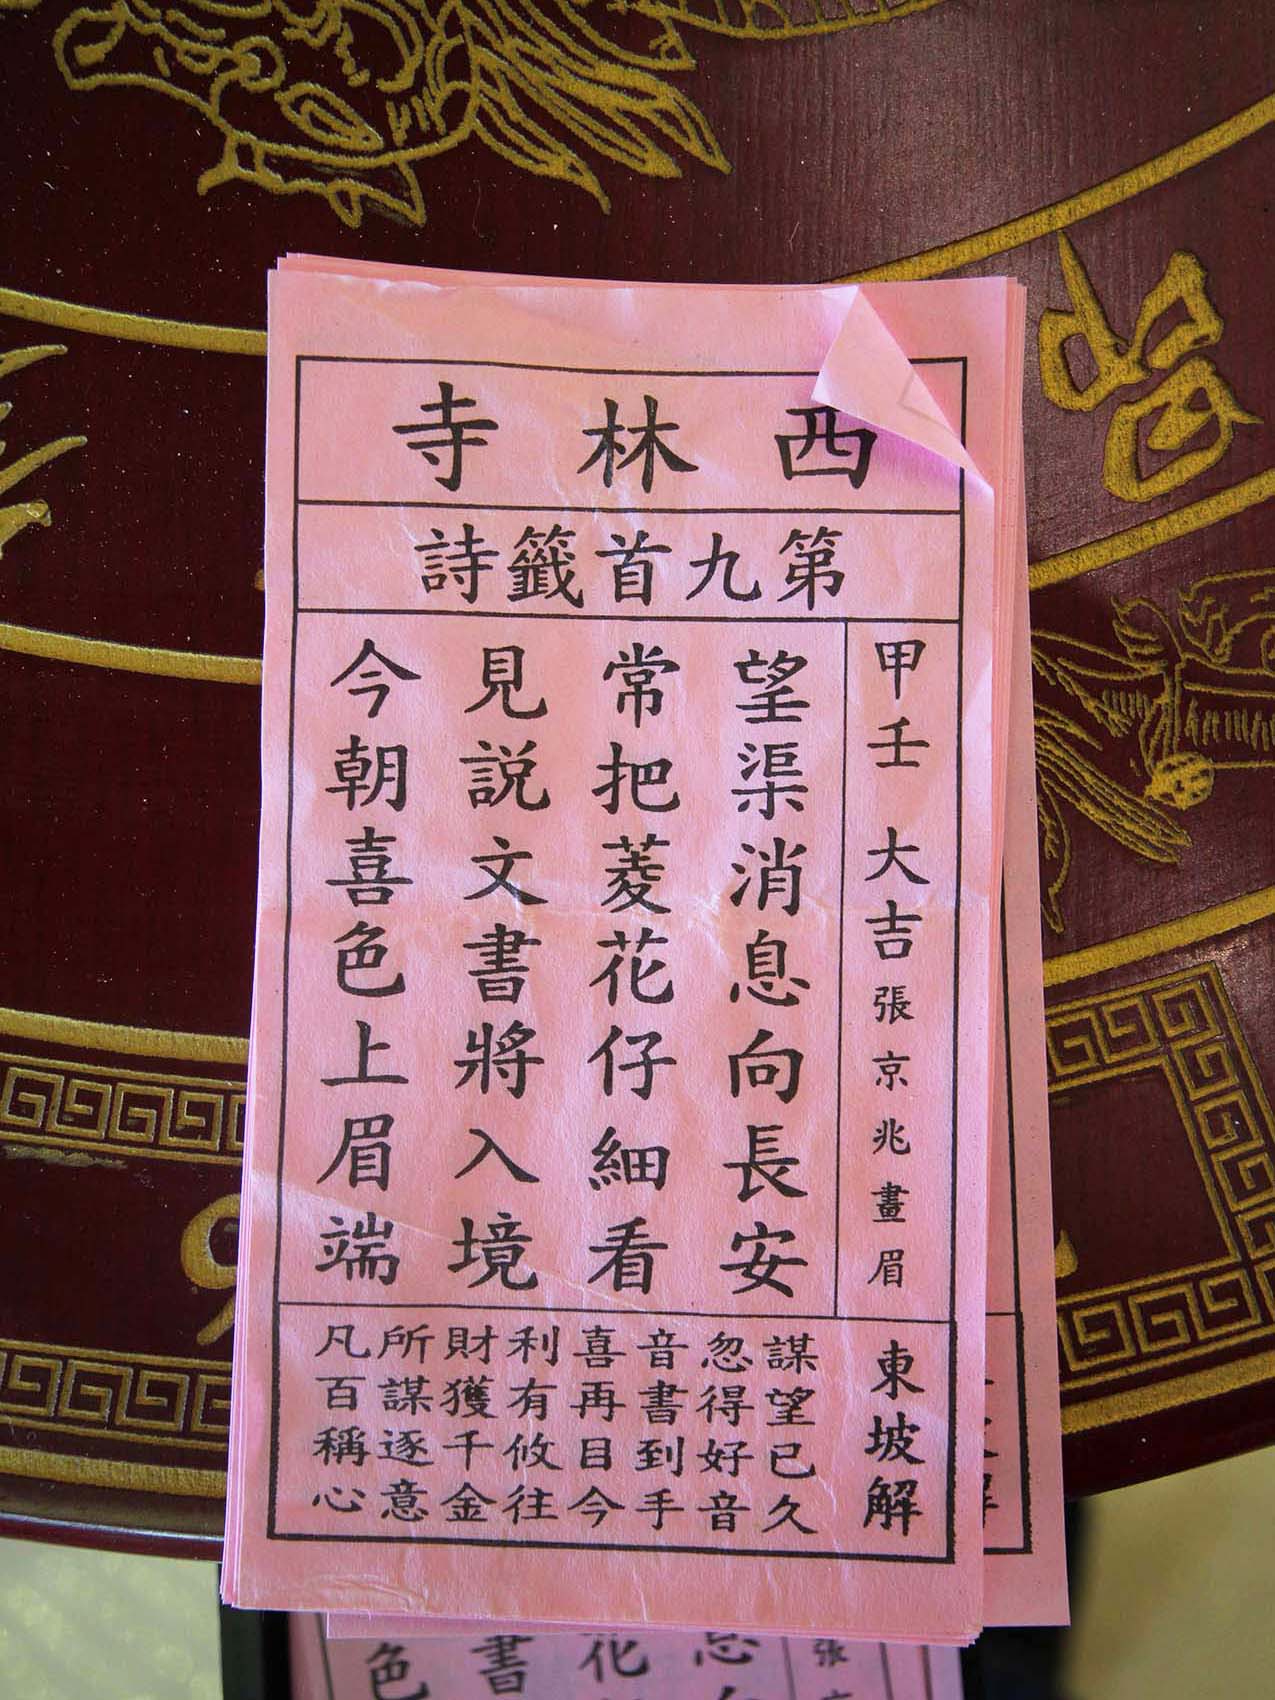 西林寺
第九首籤詩
甲壬 大吉 張京兆畫眉
望渠消息向長安
常把菱花仔細看
見說文書將入境
今朝喜色上眉端
東坡解
謀望已久
忽得好音
音書到手
喜再目今
利有攸往
財獲千金
所謀逐意
凡百稱心